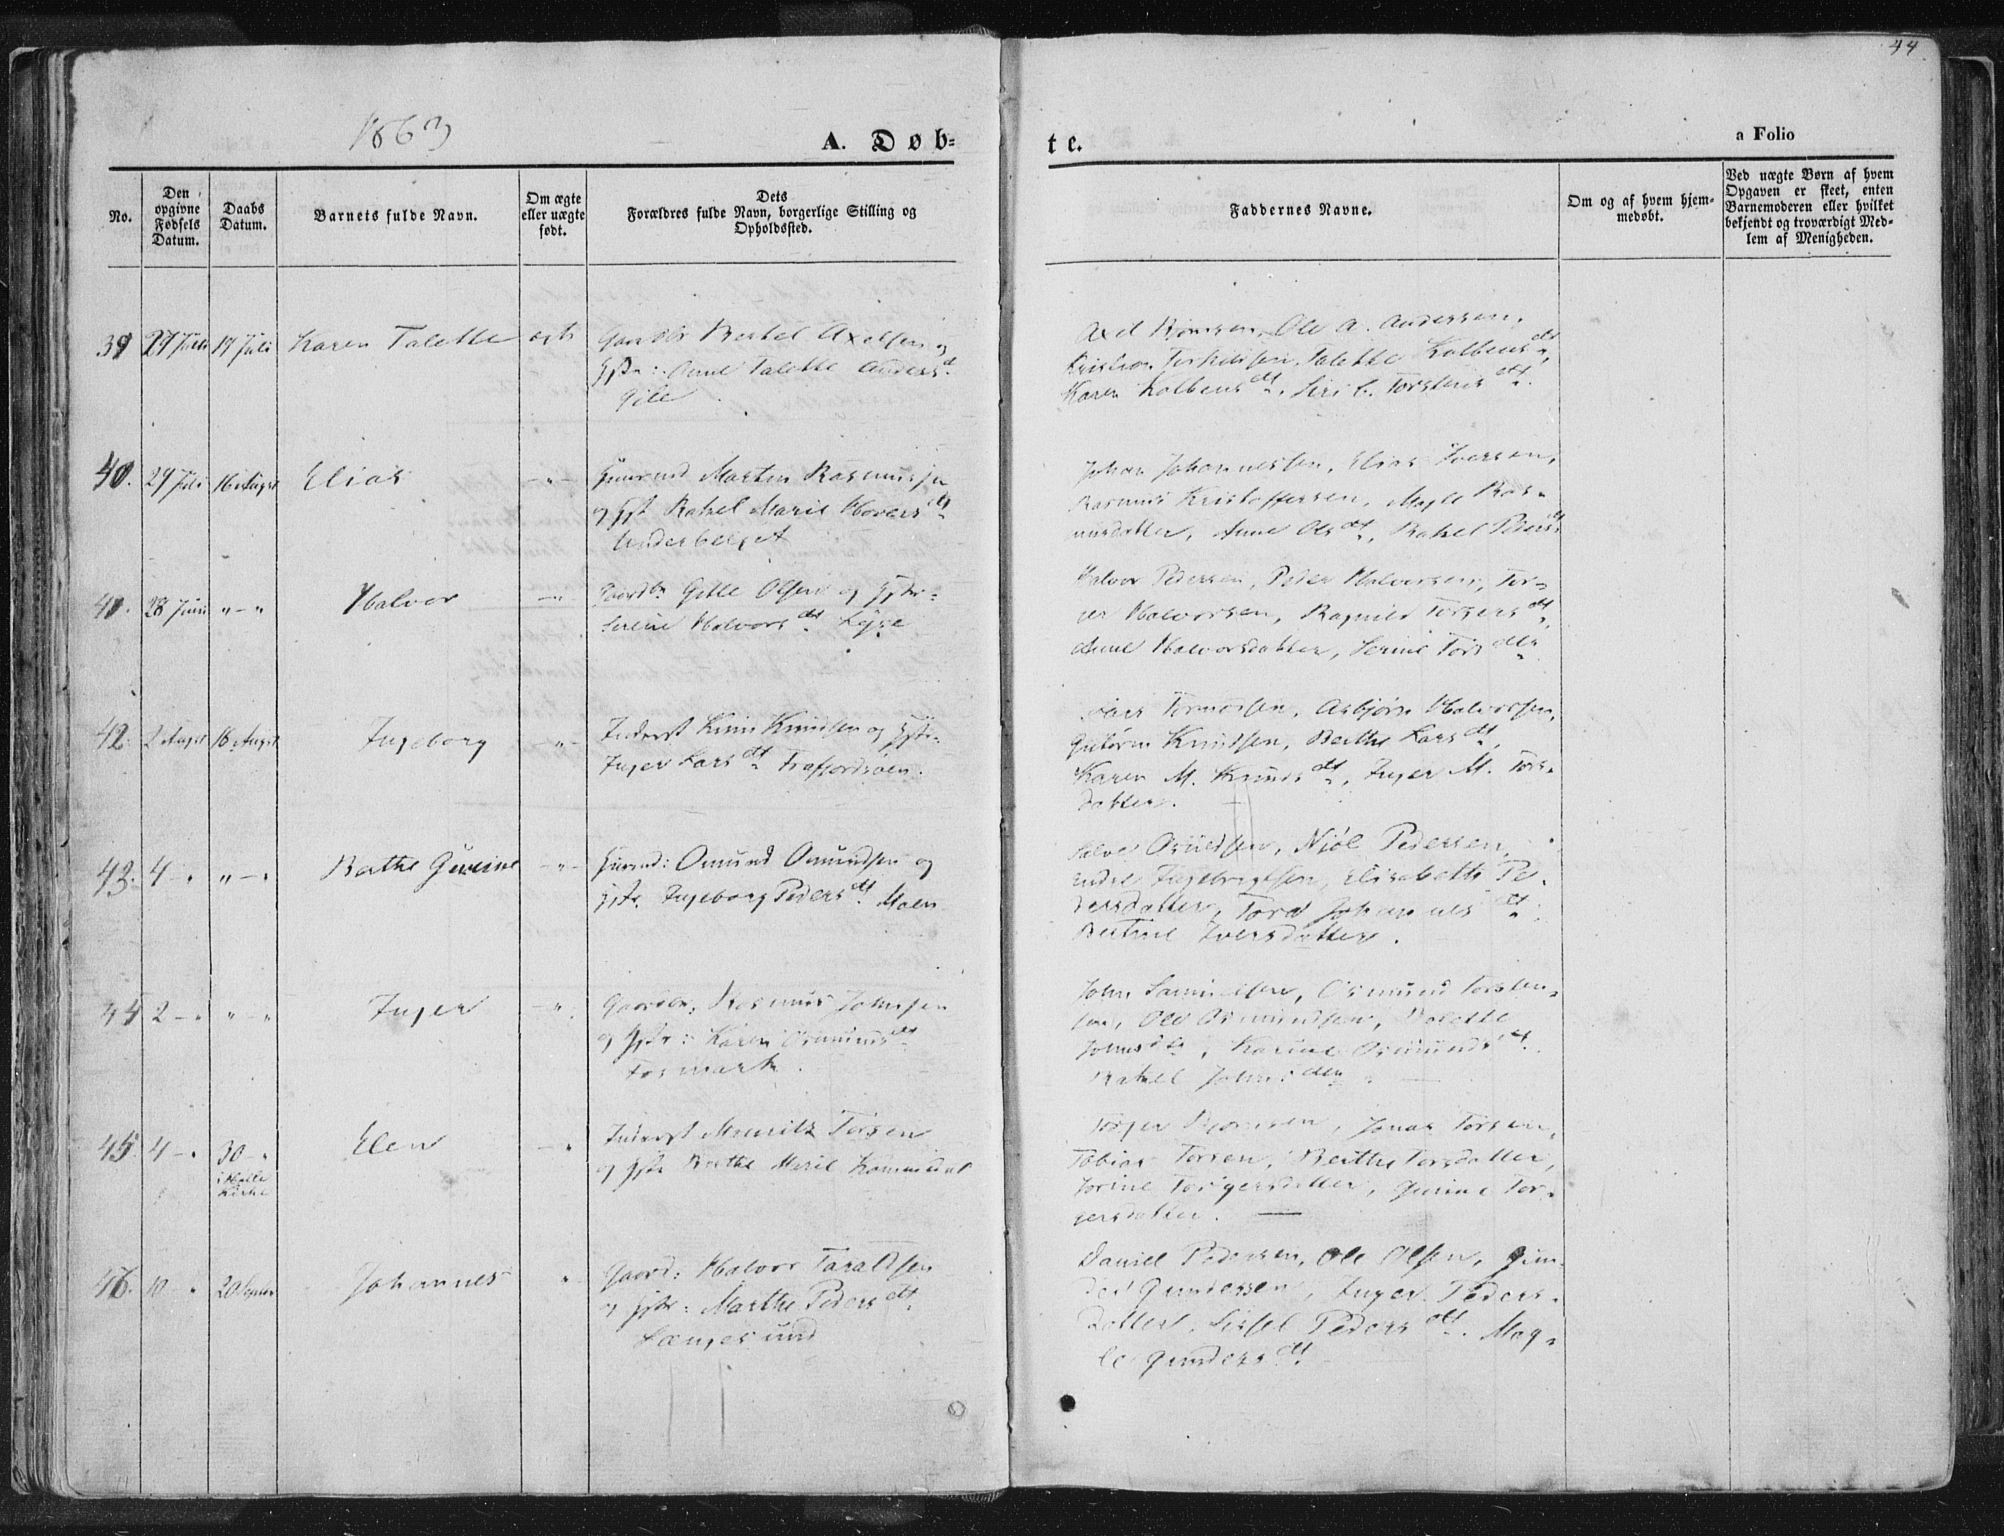 44
1863
A. Døb-
te.
a Folio
No.
Den opgivne Fødsels Datum.
Daabs Datum.
Barnets fulde Navn.
Om ægte eller uægte født.
Dets Forældres fulde Navn, borgerlige Stilling og Opholdssted.
Faddernes Navne.
Om og af hvem hjemmedøbt.
Ved uægte Børn af hvem Opgaven er skeet, enten Barnemoderen eller hvilket bekjendt og troværdigt Medlem af Menigheden.
39 Juli 19 Juli Karen Talette ægte Berthel Axelsen og
Talette Anders dt
Axel Bjørnsen, Ole A. Andersen,
Talette Kolbens dt,
Karen Kolbens dt, Siri Torsteins dt.
40. 29 Juli 16 Augst Elias -"- Morten Rasmussen
og Rakel Marie Hovers dt
Underberget
Johan Johannessen, Elias Iversen,
Rasmus Kristoffersen, Magle Ras-
musdatter, Anne Ols dt, Rakel Peders dt
41. 28 Juni "-" Halvor -"- Gitle Olsen og
Serine Halvors dt Lyse
Halvor Pedersen, Peder Halvorsen, Tor-
ger Halvorsen, Ragnild Torgers dt,
Anne Halvorsdatter, Serine Tors dtr
42. 2 Augst 16 Augst Ingeborg -"- Inderst Knud Knudsen og
Inger Lars dt Frafjordsøen.
Lars Tormodsen, Asbjørn Halvorsen,
Guttorm Knudsen, Berthe Lars dt,
Karen M. Knuds dt, Inger M. Tors-
datter.
43. 4 -" "-" Berthe Gurine -"- Osmund Osmundsen og
Ingeborg Peders dt. Moen
Salve Njøl Pedersen,
Endre Ingebregtsen, Elisabeth Pe-
dersdatter, Tora Johannes dt,
Bertine Iversdatter.
44 2 -" "-" Inger -" Rasmus Johnsen
og Karen Osmunds dt
Fosmark.
John Samuelsen, Osmund Torsten-
sen, Ole Osmundsen,
Johns dtr, Karine Osmunds dt
Rakel Johns dtr.
45. 4 -" 30 -" i Helle Kirke Elen -" Inderst Mouritz Torsen
og Berthe Marie
Torger Bjørnsen, Jonas Torsen,
Tobias Torsen, Berthe Torsdatter,
Jorine Torgersdatter, Gurine Tor-
gersdatter.
46. 10 -" 20 Septbr Johannes " Gaard: Halvor Taraldsen
og Marthe Peders dt.
Longesund
Daniel Pedersen, Ole Olsen, Gun-
der Gundersen, Inger Peders-
datter, Sissel Peders dt. Mag-
le Gunders dt